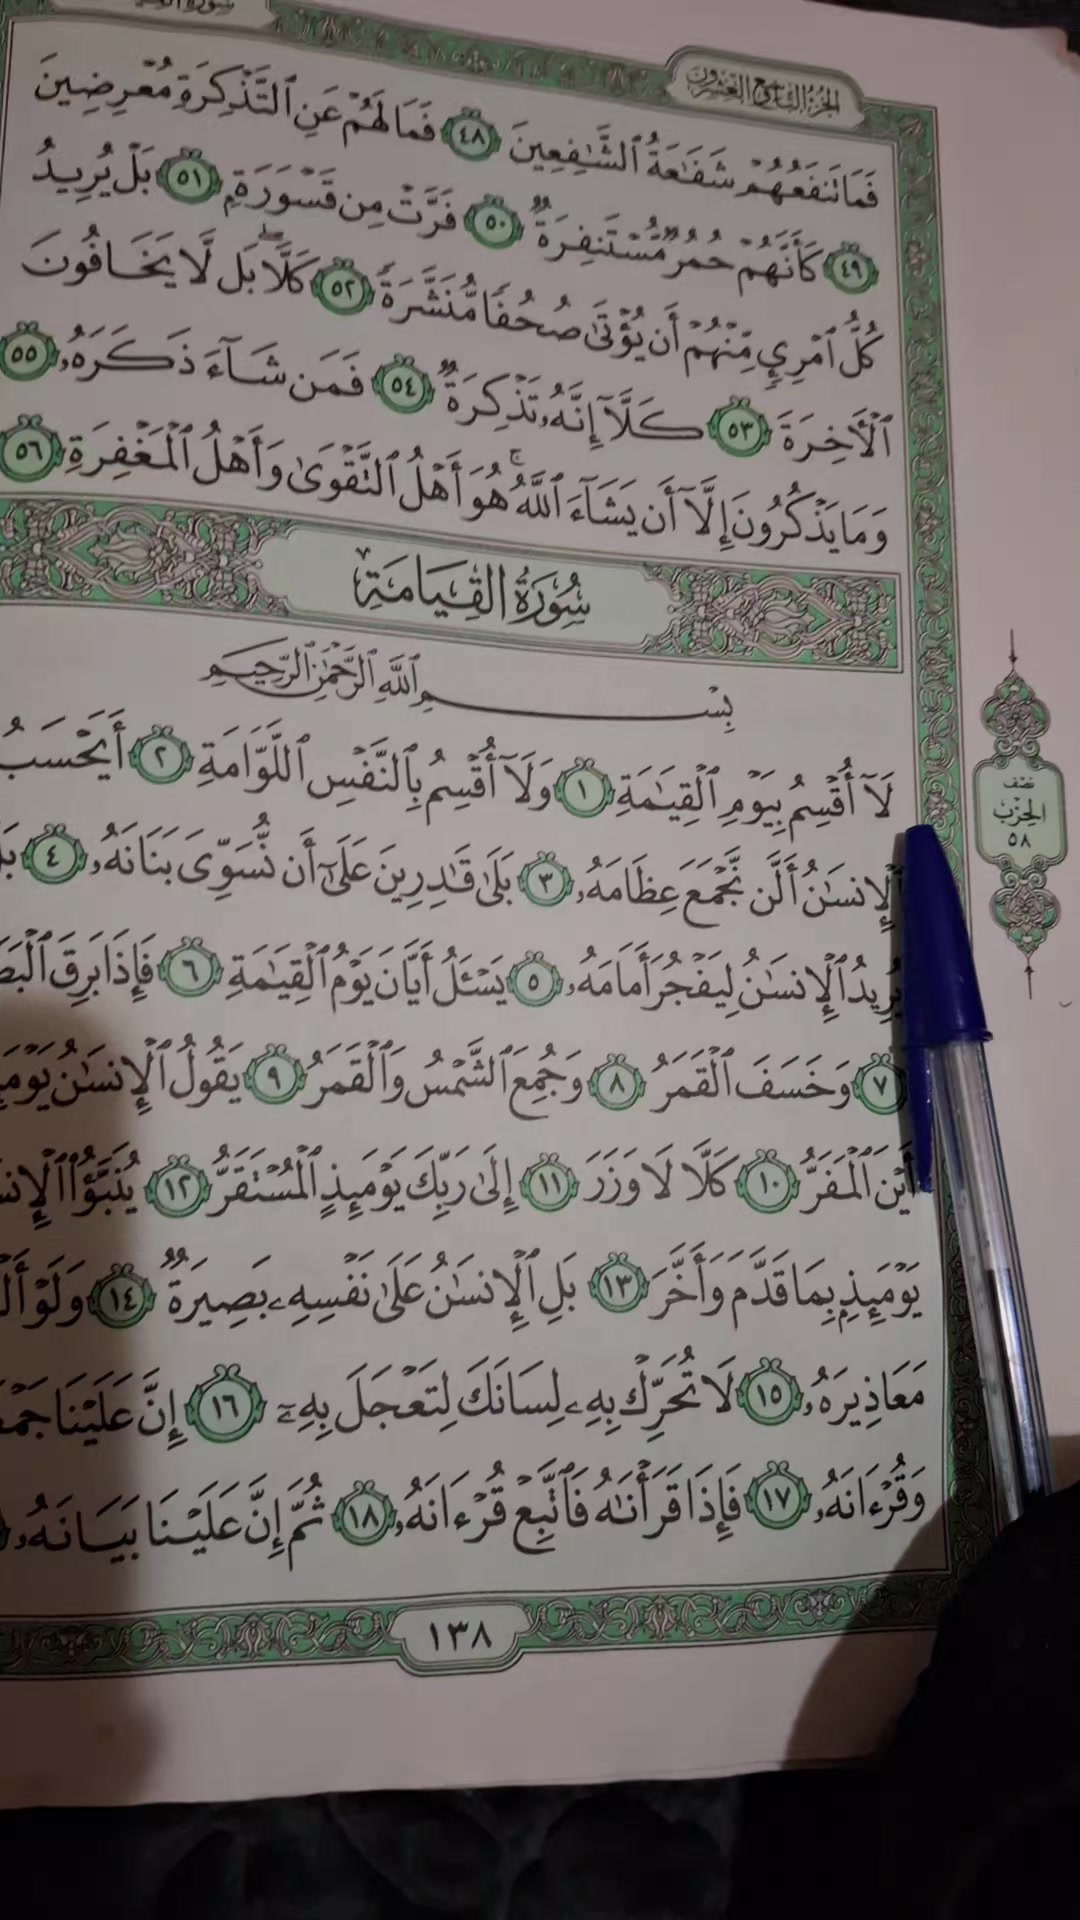 الجزء التاسع والعشرون
فَمَا تَنفَعُهُمْ شَفَٰعَةُ ٱلشَّٰفِعِينَ ٤٨ فَمَا لَهُمْ عَنِ ٱلتَّذْكِرَةِ مُعْرِضِينَ
٤٩ كَأَنَّهُمْ حُمُرٌ مُّسْتَنفِرَةٌ ٥٠ فَرَّتْ مِن قَسْوَرَةٍ ٥١ بَلْ يُرِيدُ
كُلُّ ٱمْرِئٍ مِّنْهُمْ أَن يُؤْتَىٰ صُحُفًا مُّنَشَّرَةً ٥٢ كَلَّا ۖ بَل لَّا يَخَافُونَ
ٱلْأَخِرَةَ ٥٣ كَلَّآ إِنَّهُۥ تَذْكِرَةٌ ٥٤ فَمَن شَآءَ ذَكَرَهُۥ ٥٥
وَمَا يَذْكُرُونَ إِلَّآ أَن يَشَآءَ ٱللَّهُ ۚ هُوَ أَهْلُ ٱلتَّقْوَىٰ وَأَهْلُ ٱلْمَغْفِرَةِ ٥٦
سُورَةُ القِيَامَةِ
بِسْمِ ٱللَّهِ ٱلرَّحْمَٰنِ ٱلرَّحِيمِ
لَآ أُقْسِمُ بِيَوْمِ ٱلْقِيَٰمَةِ ١ وَلَآ أُقْسِمُ بِٱلنَّفْسِ ٱللَّوَّامَةِ ٢ أَيَحْسَبُ
ٱلْإِنسَٰنُ أَلَّن نَّجْمَعَ عِظَامَهُۥ ٣ بَلَىٰ قَٰدِرِينَ عَلَىٰٓ أَن نُّسَوِّىَ بَنَانَهُۥ ٤
يُرِيدُ ٱلْإِنسَٰنُ لِيَفْجُرَ أَمَامَهُۥ ٥ يَسْـَٔلُ أَيَّانَ يَوْمُ ٱلْقِيَٰمَةِ ٦ فَإِذَا بَرِقَ
٧ وَخَسَفَ ٱلْقَمَرُ ٨ وَجُمِعَ ٱلشَّمْسُ وَٱلْقَمَرُ ٩ يَقُولُ ٱلْإِنسَٰنُ
أَيْنَ ٱلْمَفَرُّ ١٠ كَلَّا لَا وَزَرَ ١١ إِلَىٰ رَبِّكَ يَوْمَئِذٍ ٱلْمُسْتَقَرُّ ١٢ يُنَبَّؤُا۟
يَوْمَئِذٍۭ بِمَا قَدَّمَ وَأَخَّرَ ١٣ بَلِ ٱلْإِنسَٰنُ عَلَىٰ نَفْسِهِۦ بَصِيرَةٌ ١٤ وَلَوْ
مَعَاذِيرَهُۥ ١٥ لَا تُحَرِّكْ بِهِۦ لِسَانَكَ لِتَعْجَلَ بِهِۦٓ ١٦ إِنَّ عَلَيْنَا
وَقُرْءَانَهُۥ ١٧ فَإِذَا قَرَأْنَٰهُ فَٱتَّبِعْ قُرْءَانَهُۥ ١٨ ثُمَّ إِنَّ عَلَيْنَا بَيَانَهُۥ
نصف
الحزب
٥٨
١٣٨